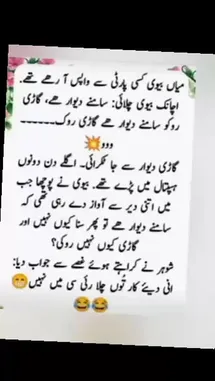 میاں بیوی کسی پارٹی سے واپس آ رھے تھے.
اچانک بیوی چلائی: سامنے دیوار ھے، گاڑی
روکو سامنے دیوار ھے گاڑی روک------
ووو
💥
گاڑی دیوار سے جا ٹکرائی۔ اگلے دن دونوں
ہسپتال میں پڑے تھے۔ بیوی نے پوچھا جب
میں اتنی دیر سے آواز دے رھی تھی کہ
سامنے دیوار ھے تو پھر سنا کیوں نہیں اور
گاڑی کیوں نہیں روکی؟
شوہر نے کراہتے ہوئے غصے سے جواب دیا:
انی دیئے کار توں چلا رئی سی میں نہیں😁
😂😂